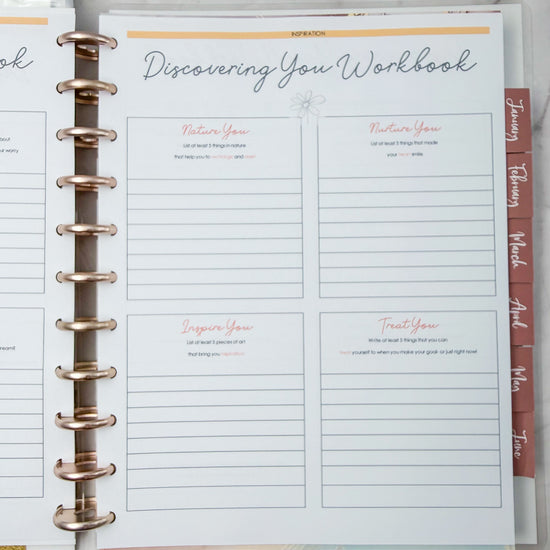 INSPIRATION
Discovering You Workbook
Nature You
List at least 5 things in nature
that help you to recharge and reset!
Nurture You
List at least 3 things that made
your heart smile.
Inspire You
List at least 3 pieces of art
that bring you inspiration
Treat You
Write at least 3 things that you can
treat yourself to when you make your goal- or just right now!
January
February
March
April
May
June
ok
about
our worry